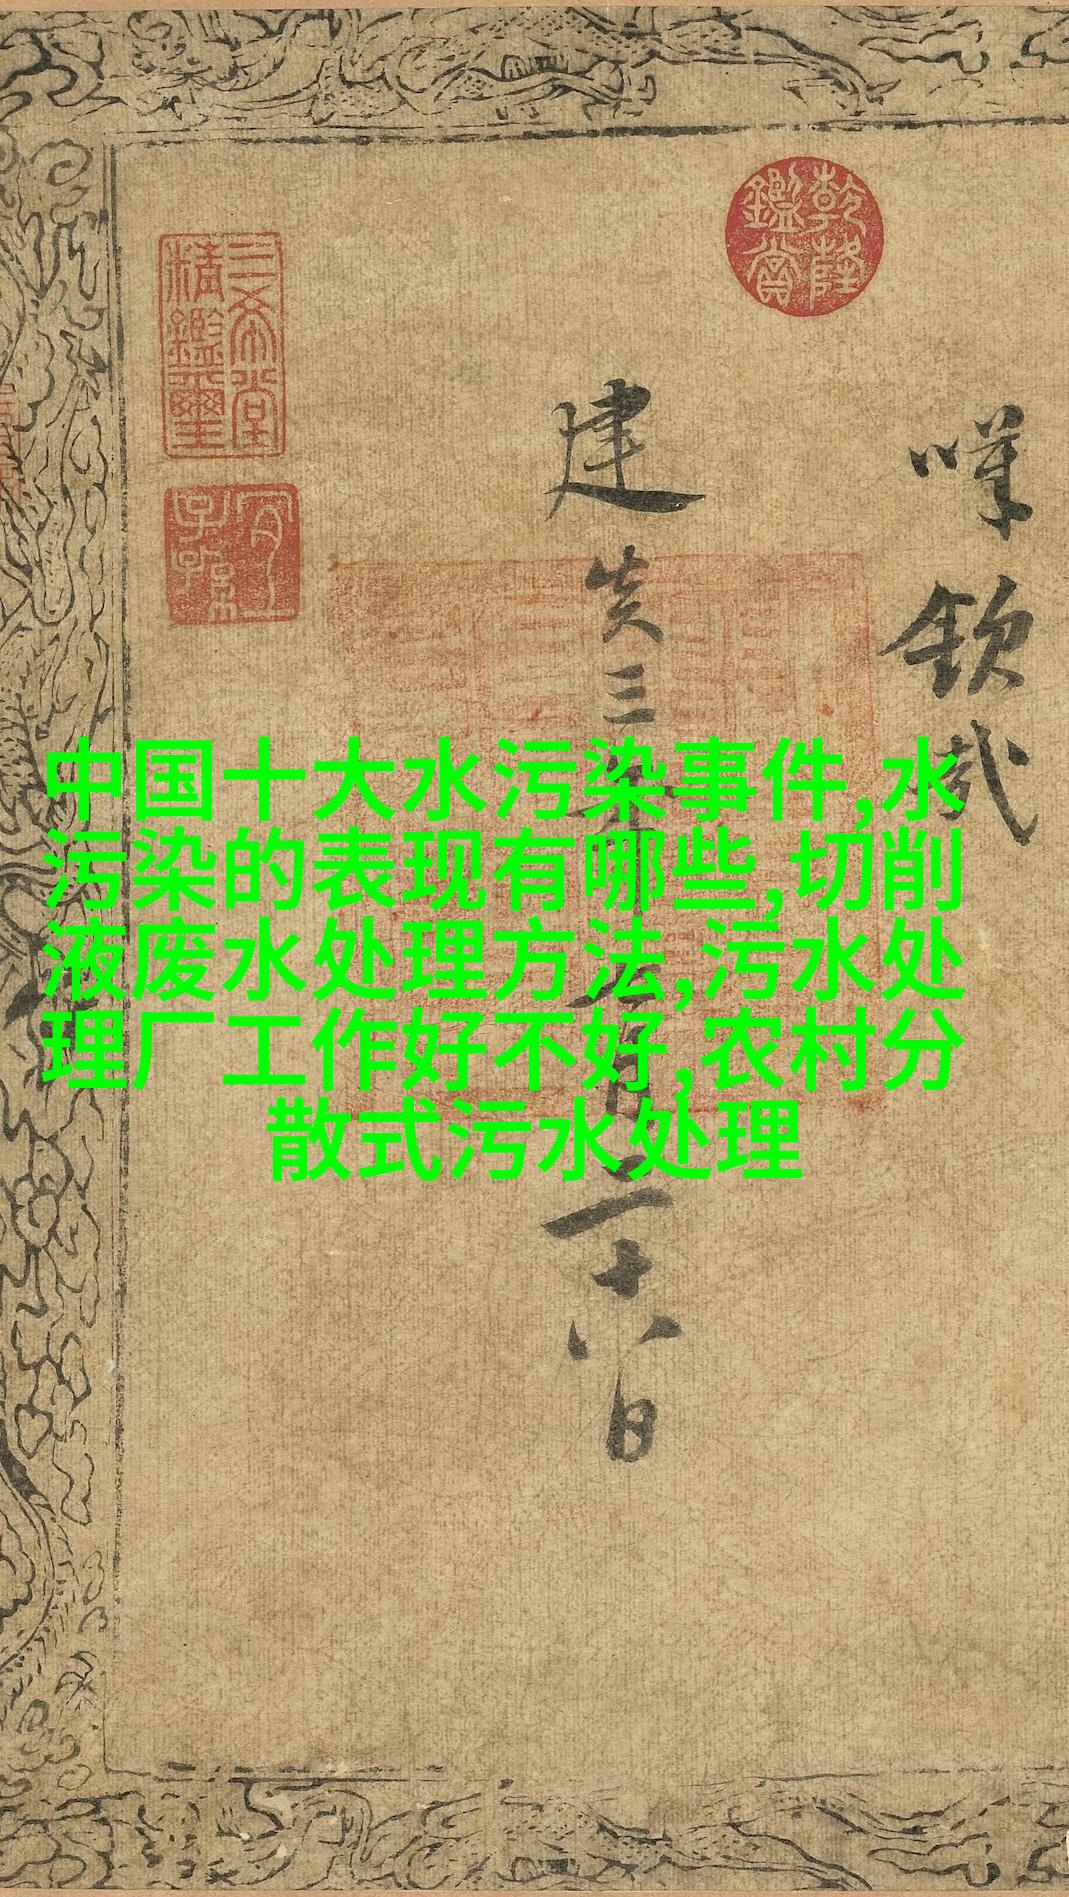 中国十大水污染事件,水
污染的表现有哪些,切削
液废水处理方法,污水处
理厂工作好不好,农村分
散式污水处理
乾隆
鑑賞
三希堂
精鑑璽
宜
子孫
建炎三年
五月二十八日
嘆欽哉